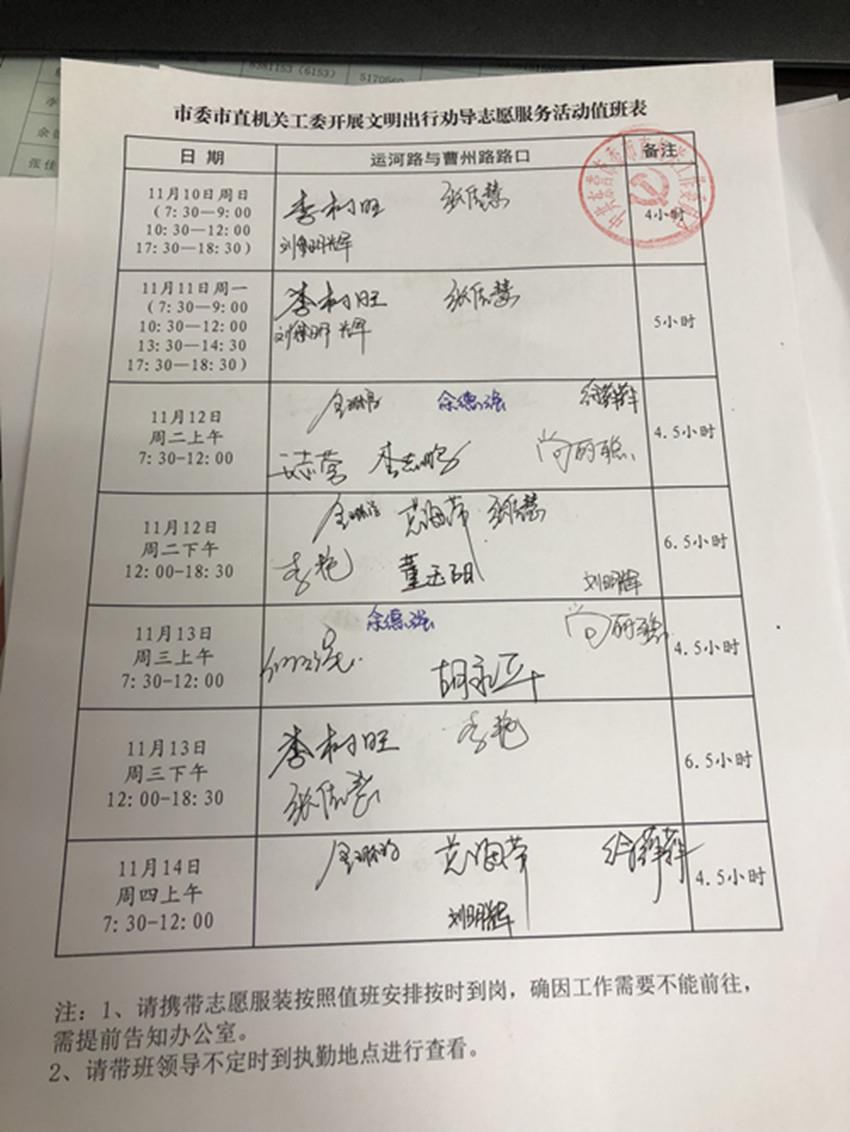 5381153(6153)
市委市直机关工委开展文明出行劝导志愿服务活动值班表
日 期 运河路与曹州路路口 备注
11月10日周日
（7:30—9:00
10:30—12:00
17:30—18:30）
李树旺 张佳慧
刘明辉
4小时
11月11日周一
（7:30—9:00
10:30—12:00
13:30—14:30
17:30—18:30）
李树旺 张佳慧
5小时
11月12日
周二上午
7:30-12:00
余德强
尚丽聪
4.5小时
11月12日
周二下午
12:00-18:30
张佳慧
李艳 董玉阳 刘明辉
6.5小时
11月13日
周三上午
7:30-12:00
余德强 尚丽聪
胡永平
4.5小时
11月13日
周三下午
12:00-18:30
李树旺 李艳
张佳慧
6.5小时
11月14日
周四上午
7:30-12:00
刘明辉
4.5小时
注：1、请携带志愿服装按照值班安排按时到岗，确因工作需要不能前往，
需提前告知办公室。
2、请带班领导不定时到执勤地点进行查看。